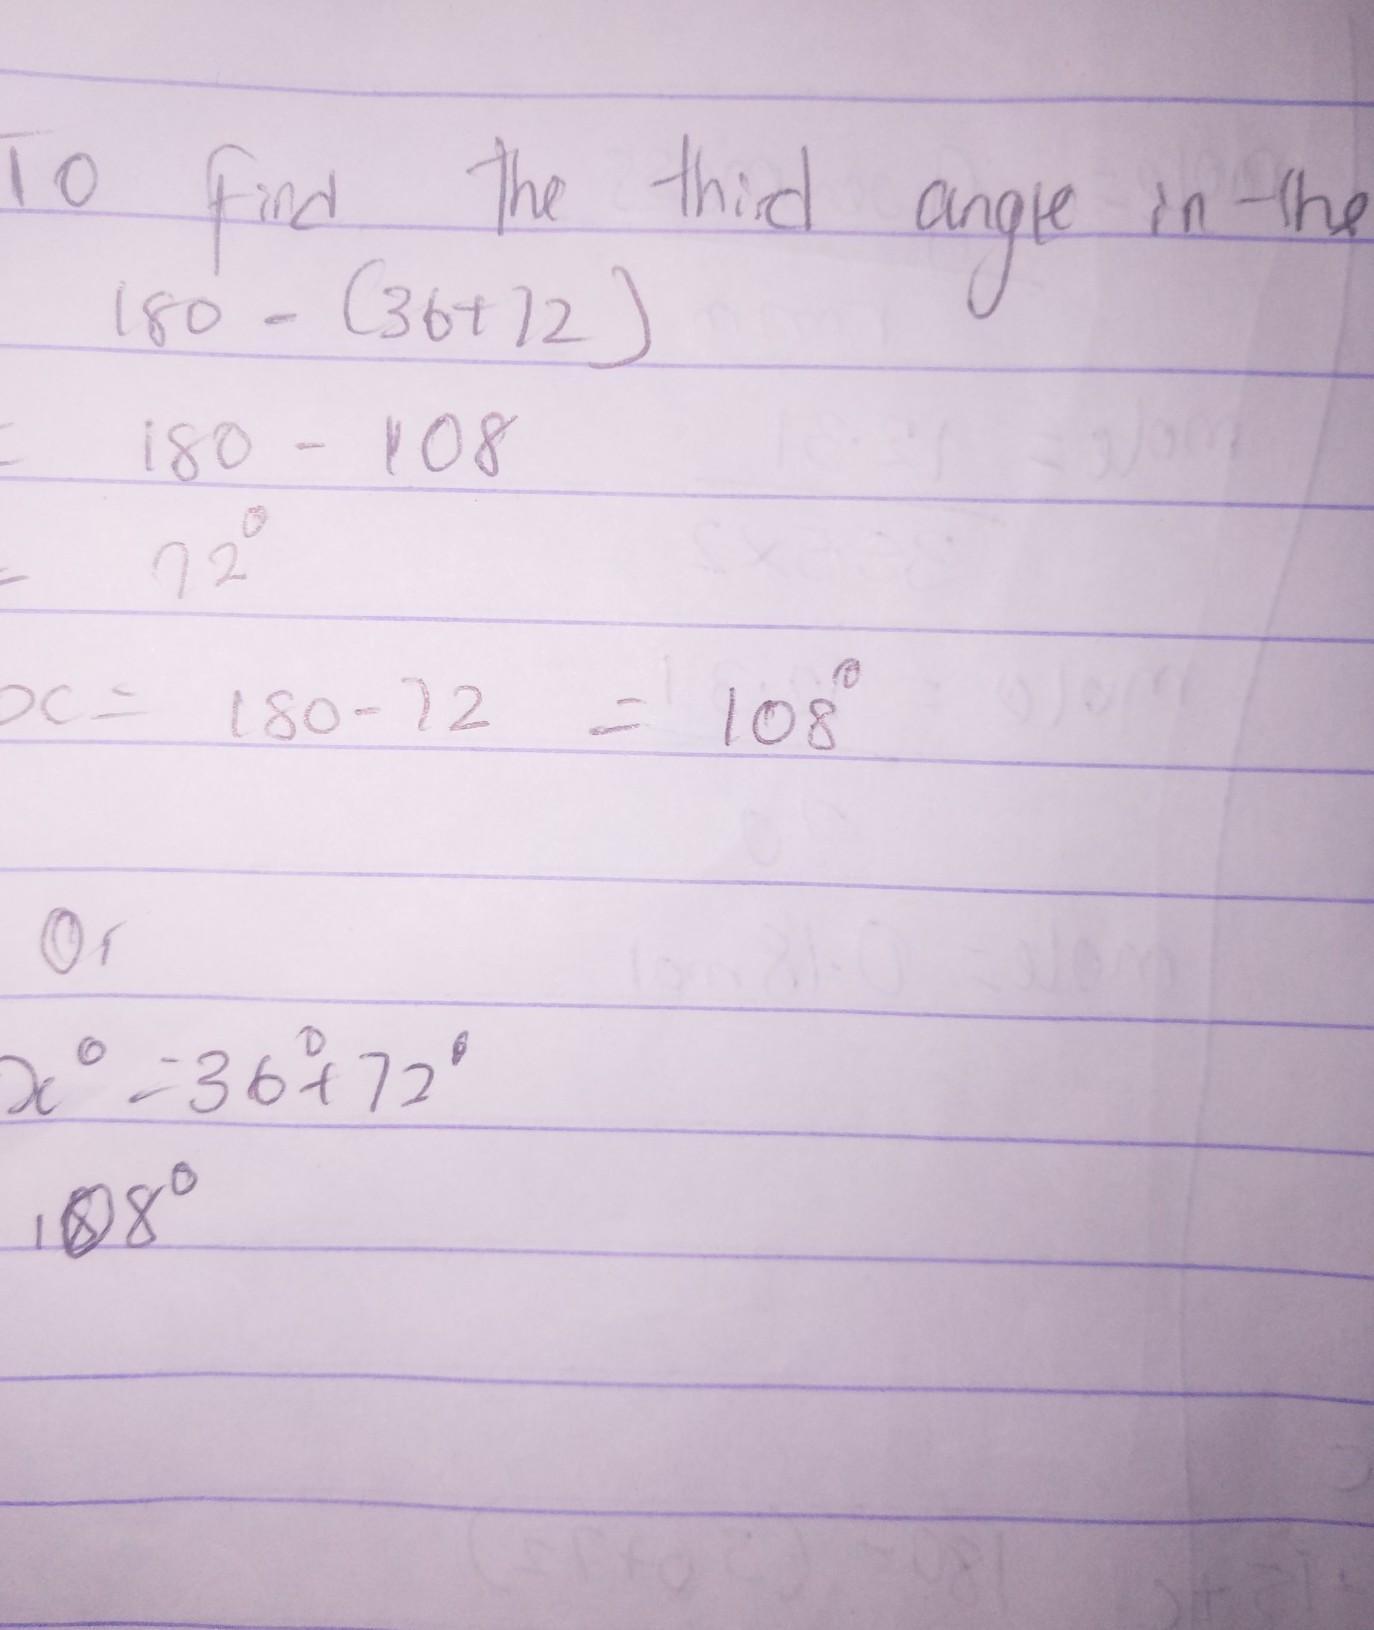 To find the third angle in the
180 - (36+72)
= 180 - 108
= 72°
x = 180-72 = 108°
Or
x° = 36°+72°
108°